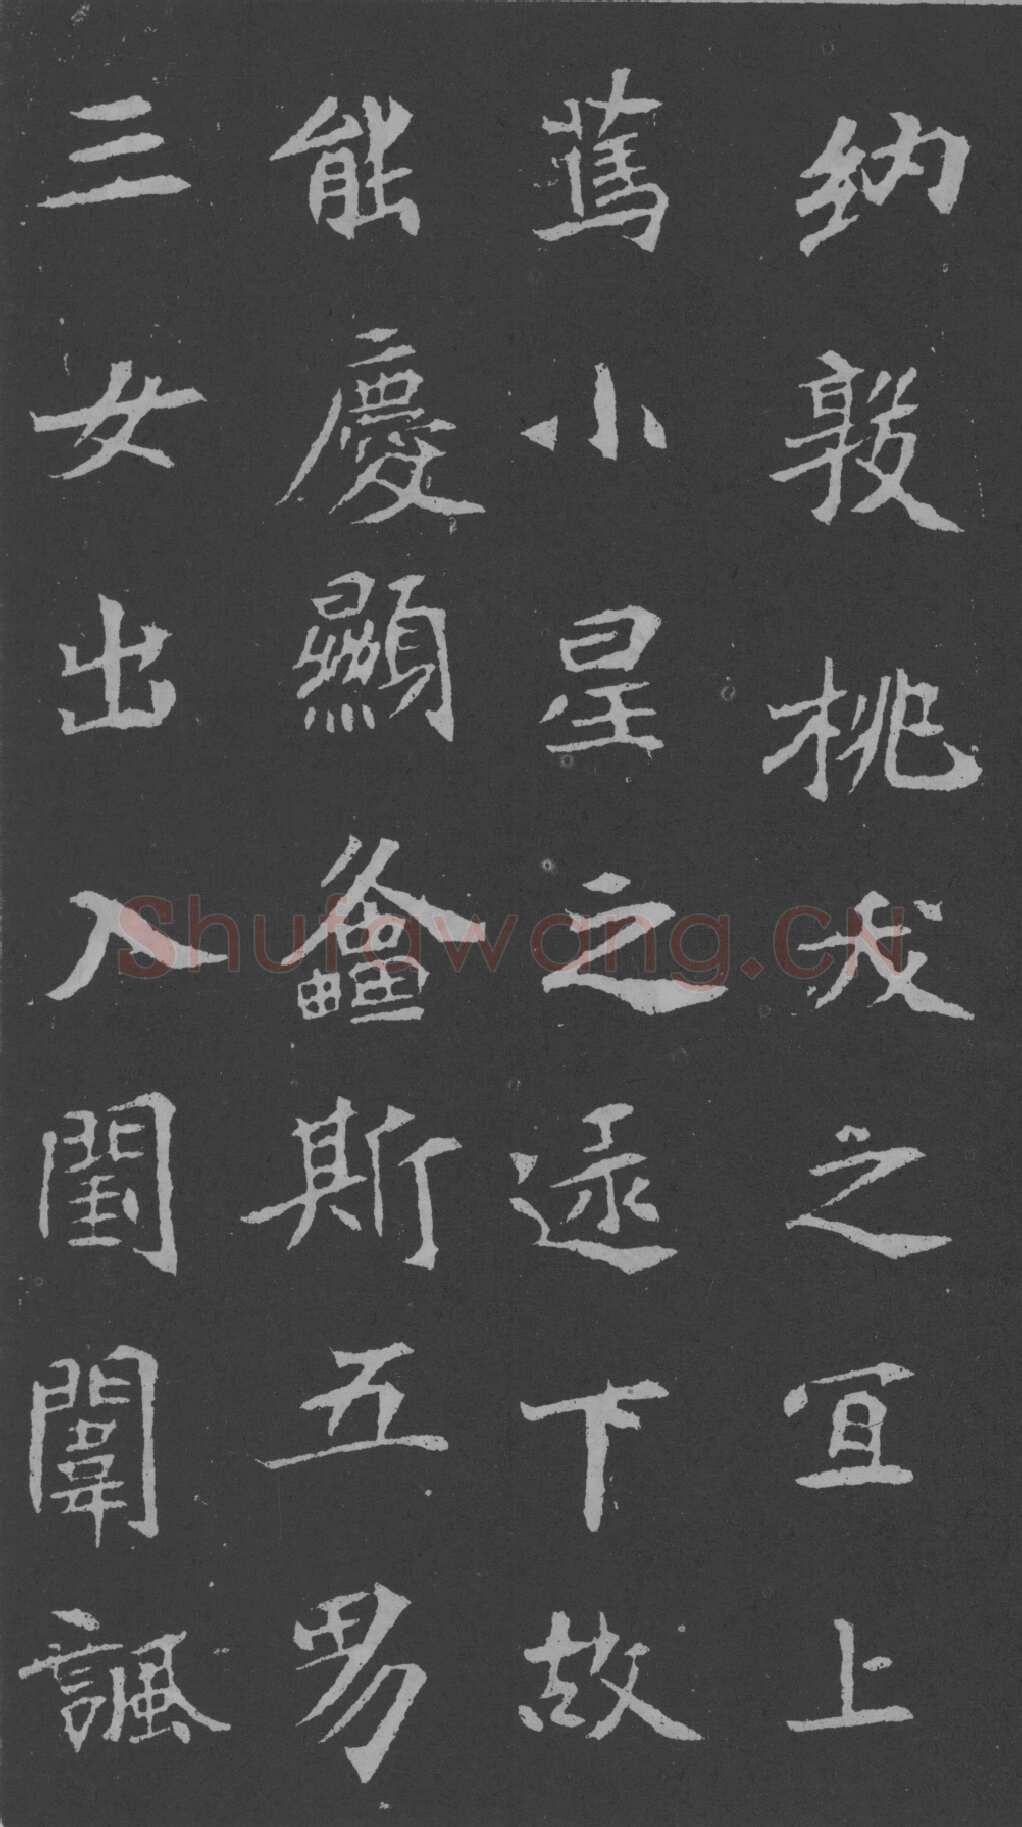 纳敦桃夭之宜上
蔦小星之逮下故
能慶顯螽斯五男
三女出入閨闈諷
Shufawang.CN